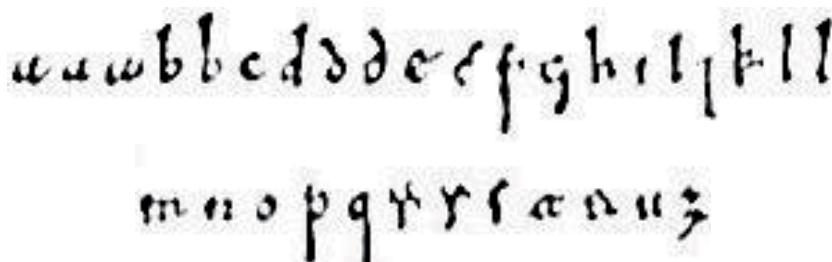 a a a b b c d d d e e f g h i l j k l l
m n o p q r r s u z